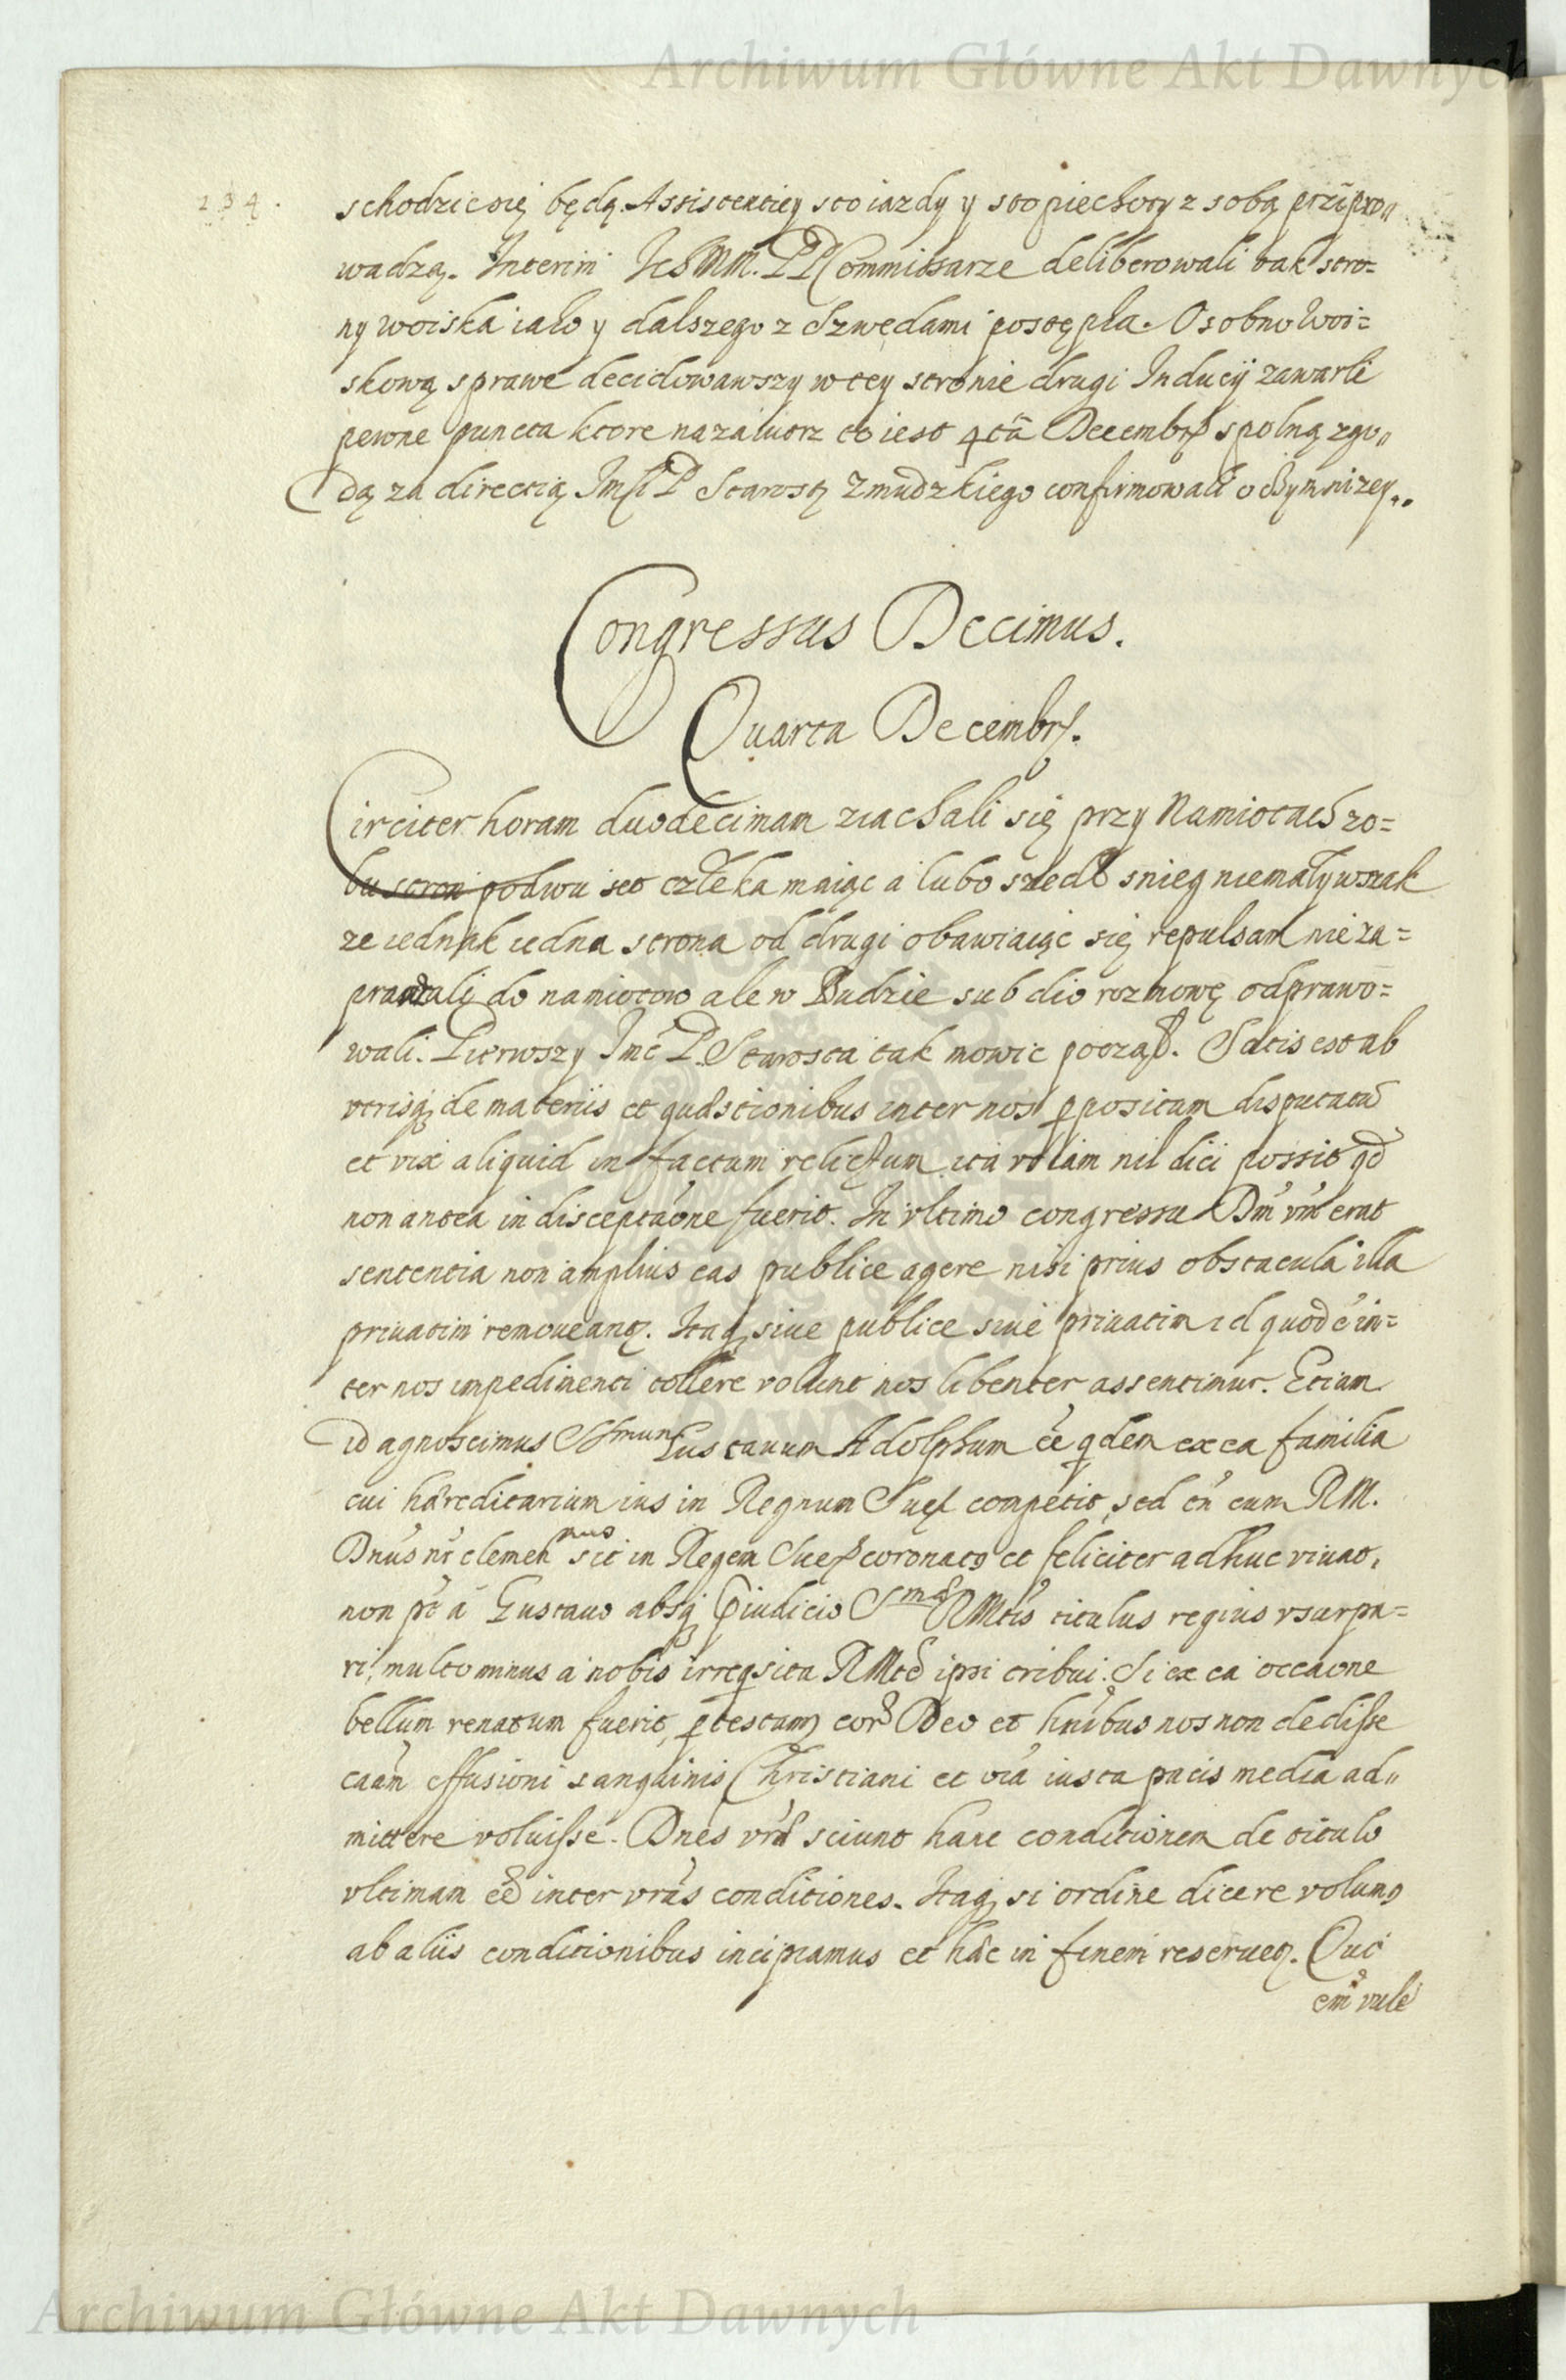 Archiwum Główne Akt Dawnych
234.
schodzic się będą. Assistentiey sto iazdy y sto piechoty z sobą przipro„
wadzą. Interim IchMM. PP Commissarze deliberowali tak stro=
ny woiska iako y dalszego z Szwedami postępku. Osobno Woi=
skową sprawe decidowawszy w tey stronie drugi Inducij zawarli
pewne puncta ktore nazaiutrz to iest 4tã Decembrꝭ spolną zgo„
dą za directią Imſci P Starosty Zmudzkiego confirmowali o cżym nizey..
Congressus Decimus.
Quarta Decembrꝭ.
Circiter horam duodecimam ziachali się przy Namiotach zo=
bu stron podwu set człeka maiąc a lubo szedł snieg niemały wszak
ze iednak iedna strona od drugi obawiaiąc się repulsam nie za=
praszali do namiotow ale w Budzie sub dio rozmowę odprawo=
wali. Pierwszy Imć P. Starosta tak mowic począł. Satis est ab
vtrisqꝫ de materiis et quæstionibus inter nos ꝓpositum disputatũ
et vix aliquid in factum relictum ita vt iam nil dici possit qđ
non antea in disceptãone fuerit. In vltimo congressu Dm̃ vrã erat
sententia non amplius eas publice agere nisi prius obstacula illa
priuatim remoueantꝛ. Itaqꝫ siue publice siue priuatim id quod ẽ in=
ter nos impedimenti tollere volunt nos libenter assentimur. Etiam
id agnoscimus Sſmum Gustauum Adolphum ẽe qdem ex ea familia
cui hæreditarium ius in Regnum Sueꝭ competit, sed cũ eum RM.
Dnũs nr̃ clemen nus sit in Regem Sueꝭ coronatꝯ et feliciter adhuc viuat,
non pt̃ a Gustauo absqꝫ p̃iudicio Smæ RMtis titulus regius vsurpa=
ri, multo minus a nobis irreqsita RMte ipsi tribui. Si ex ea occãone
bellum renatum fuerit, ꝓtestamꝛ corã Deo et hõibus nos non dedisse
caãm effusioni sanguinis Christiani et oĩa iusta pacis media ad„
mittere voluisse. Dnẽs vrã sciunt hanc conditionem de titulo
vltimam eẽ inter vrãs conditiones. Itaqꝫ si ordine dicere volumꝯ
ab aliis conditionibus incipiamus et hãc in finem reseruetꝛ. Qui
em̃ vule
Archiwum Główne Akt Dawnych